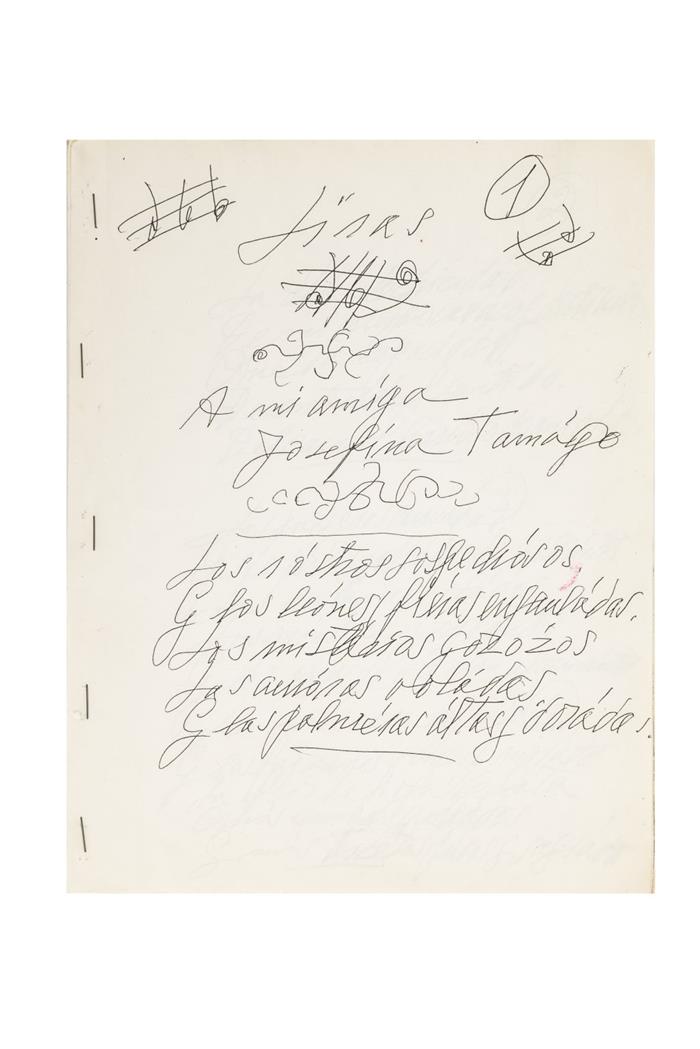 1
Liras
A mi amiga
Josefina Tamáyo
Los róstros sospechósos,
Y los leónes, fiéras enjauládas.
Los mistérios gozozos
Las auróras voládas
Y las palméras áltas y dorádas.